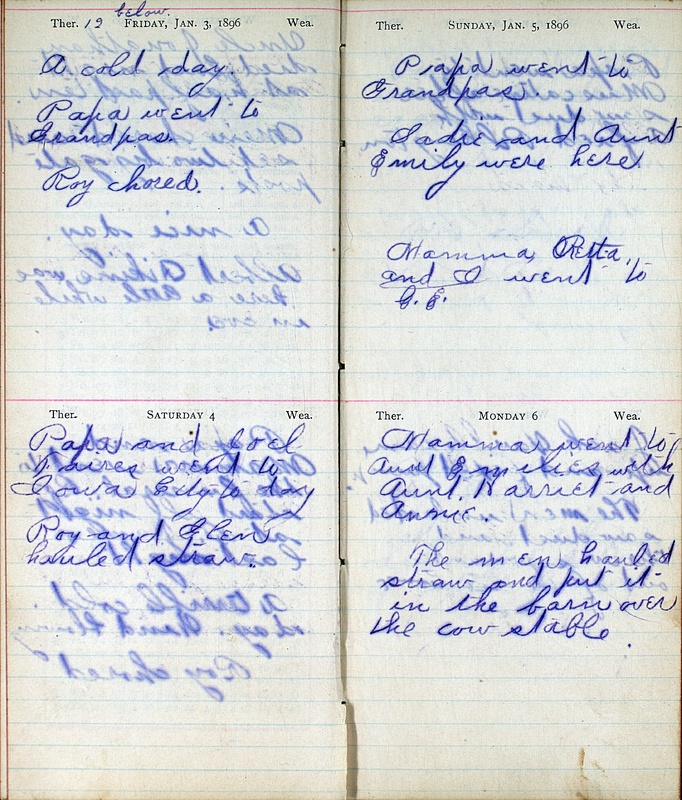 below.
Ther. 12 FRIDAY, JAN. 3, 1896 Wea.
A cold day.
Papa went to
Grandpas.
Roy chored.
Ther. SATURDAY 4 Wea.
Papa and Joel
Faires went to
Iowa City to day
Roy and Glen
hauled straw.
Ther. SUNDAY, JAN. 5, 1896 Wea.
Papa went to
Grandpas.
Sadie and Aunt
Emily were here.
Mamma, Retta,
and I went to
C.E.
Ther. MONDAY 6 Wea.
Mamma went to
Aunt Emilies with
Aunt Harriet and
Annie.
The men hauled
straw and put it
in the barn over
the cow stable.